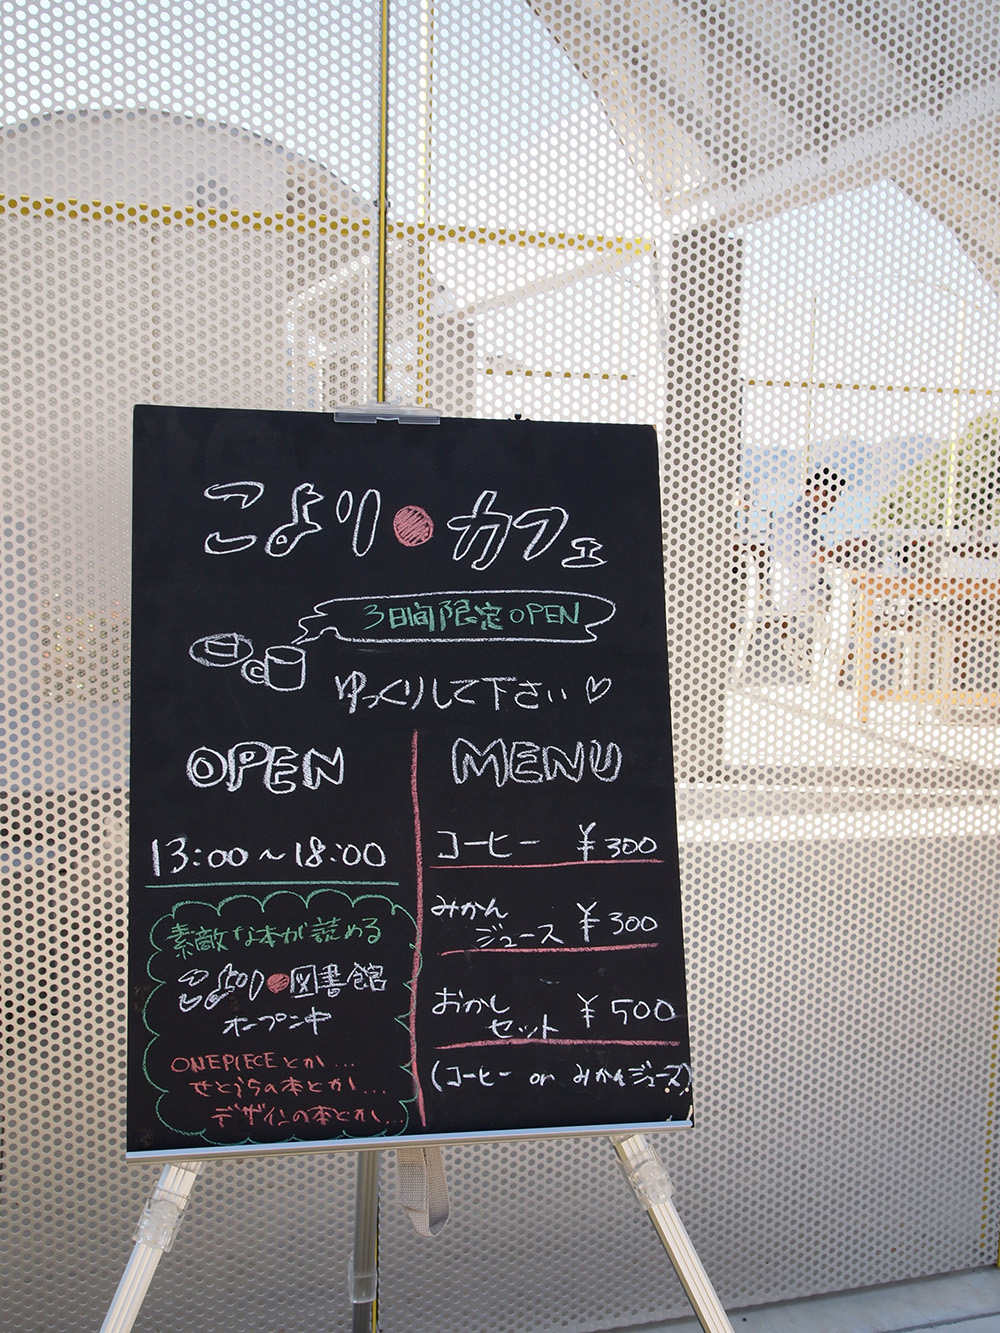 こより●カフェ
3日間限定OPEN
ゆっくりして下さい♡
OPEN
13:00～18:00
素敵な本が読める
こより●図書館
オープン中
ONEPIECEとか...
せとうちの本とか...
デザインの本とか...
MENU
コーヒー ¥300
みかん
ジュース ¥300
おかし
セット ¥500
(コーヒー or みかんジュース)